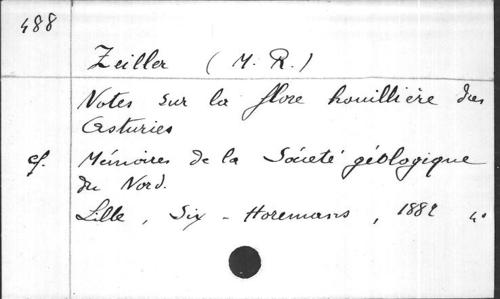 488
Zeiller (M. R.)
Notes sur la flore houillière des
Asturies
cf. Mémoires de la Société géologique
du Nord.
Lille, Six-Horemans, 1882 4°